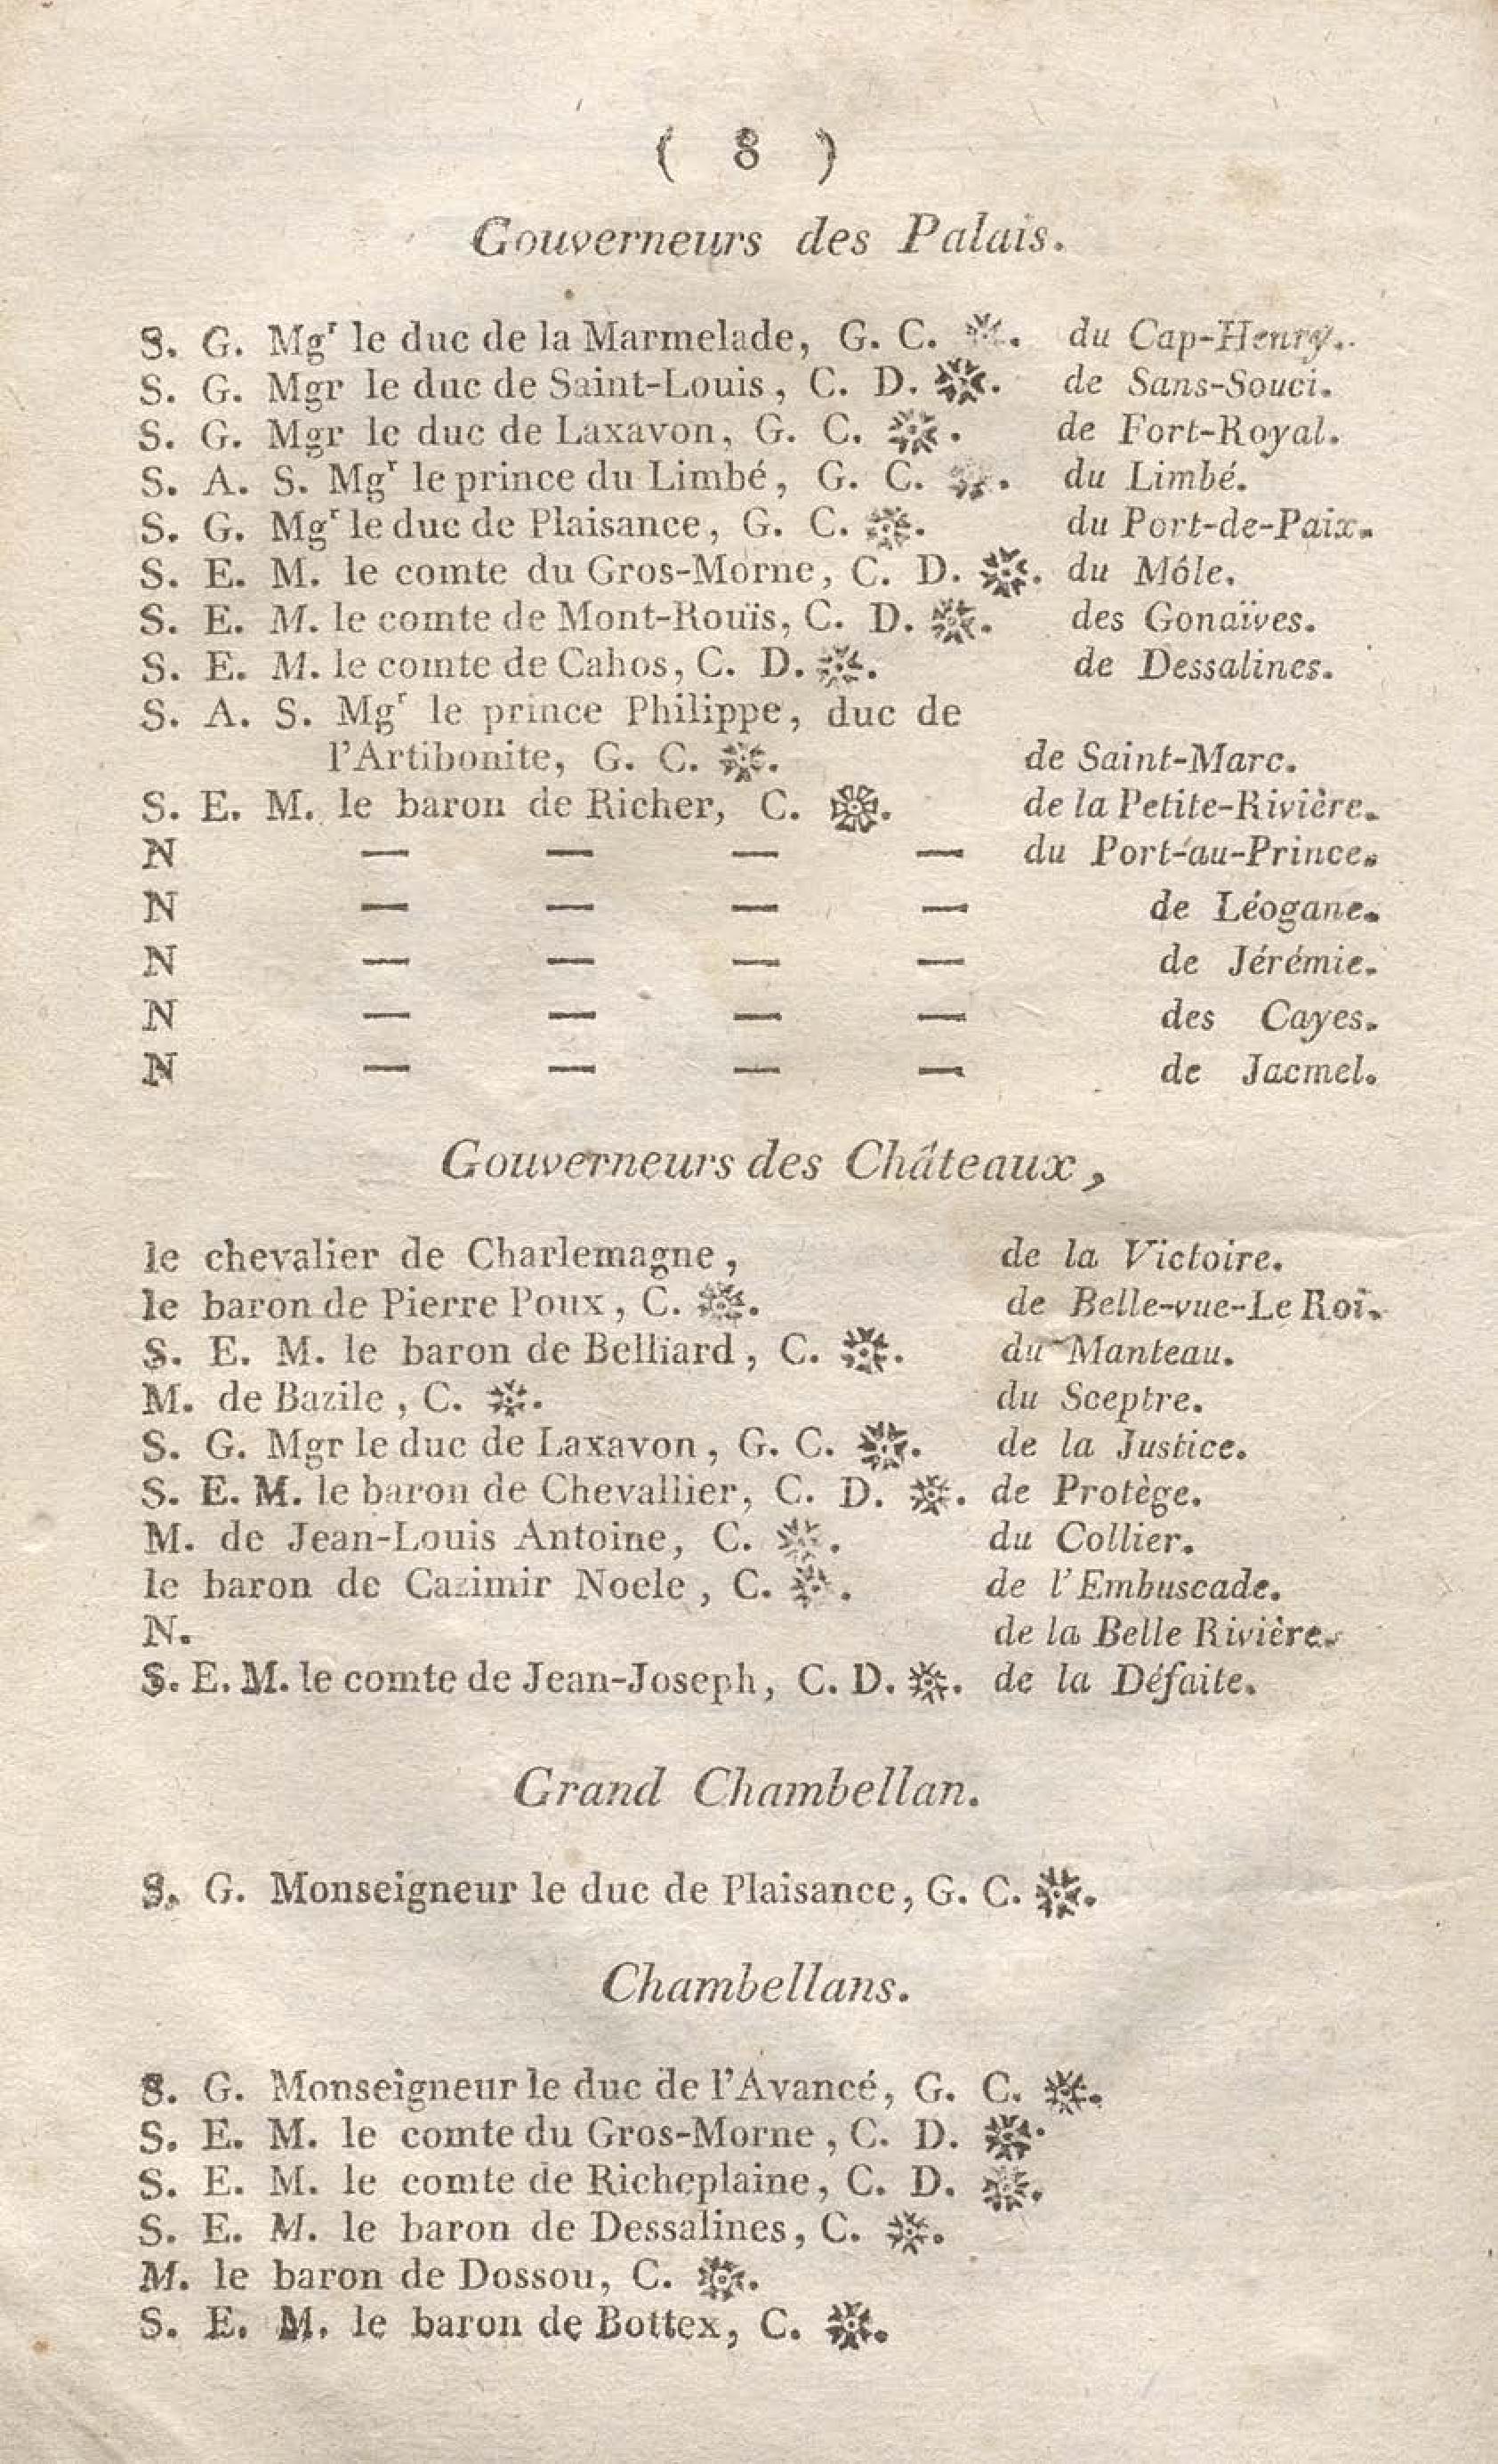 ( 8 )
Gouverneurs des Palais.
S. G. Mgr le duc de la Marmelade, G. C. ❉. du Cap-Henry.
S. G. Mgr le duc de Saint-Louis, C. D. ❉. de Sans-Souci.
S. G. Mgr le duc de Laxavon, G. C. ❉. de Fort-Royal.
S. A. S. Mgr le prince du Limbé, G. C. ❉. du Limbé.
S. G. Mgr le duc de Plaisance, G. C. ❉. du Port-de-Paix.
S. E. M. le comte du Gros-Morne, C. D. ❉. du Môle.
S. E. M. le comte de Mont-Rouïs, C. D. ❉. des Gonaïves.
S. E. M. le comte de Cahos, C. D. ❉. de Dessalines.
S. A. S. Mgr le prince Philippe, duc de
l'Artibonite, G. C. ❉. de Saint-Marc.
S. E. M. le baron de Richer, C. ❉. de la Petite-Rivière.
N — — — — du Port-au-Prince.
N — — — — de Léogane.
N — — — — de Jérémie.
N — — — — des Cayes.
N — — — — de Jacmel.
Gouverneurs des Châteaux,
le chevalier de Charlemagne, de la Victoire.
le baron de Pierre Poux, C. ❉. de Belle-vue-Le Roi.
S. E. M. le baron de Belliard, C. ❉. du Manteau.
M. de Bazile, C. ❉. du Sceptre.
S. G. Mgr le duc de Laxavon, G. C. ❉. de la Justice.
S. E. M. le baron de Chevallier, C. D. ❉. de Protège.
M. de Jean-Louis Antoine, C. ❉. du Collier.
le baron de Cazimir Noele, C. ❉. de l'Embuscade.
N. de la Belle Rivière.
S. E. M. le comte de Jean-Joseph, C. D. ❉. de la Défaite.
Grand Chambellan.
S. G. Monseigneur le duc de Plaisance, G. C. ❉.
Chambellans.
S. G. Monseigneur le duc de l'Avancé, G. C. ❉.
S. E. M. le comte du Gros-Morne, C. D. ❉.
S. E. M. le comte de Richeplaine, C. D. ❉.
S. E. M. le baron de Dessalines, C. ❉.
M. le baron de Dossou, C. ❉.
S. E. M. le baron de Bottex, C. ❉.